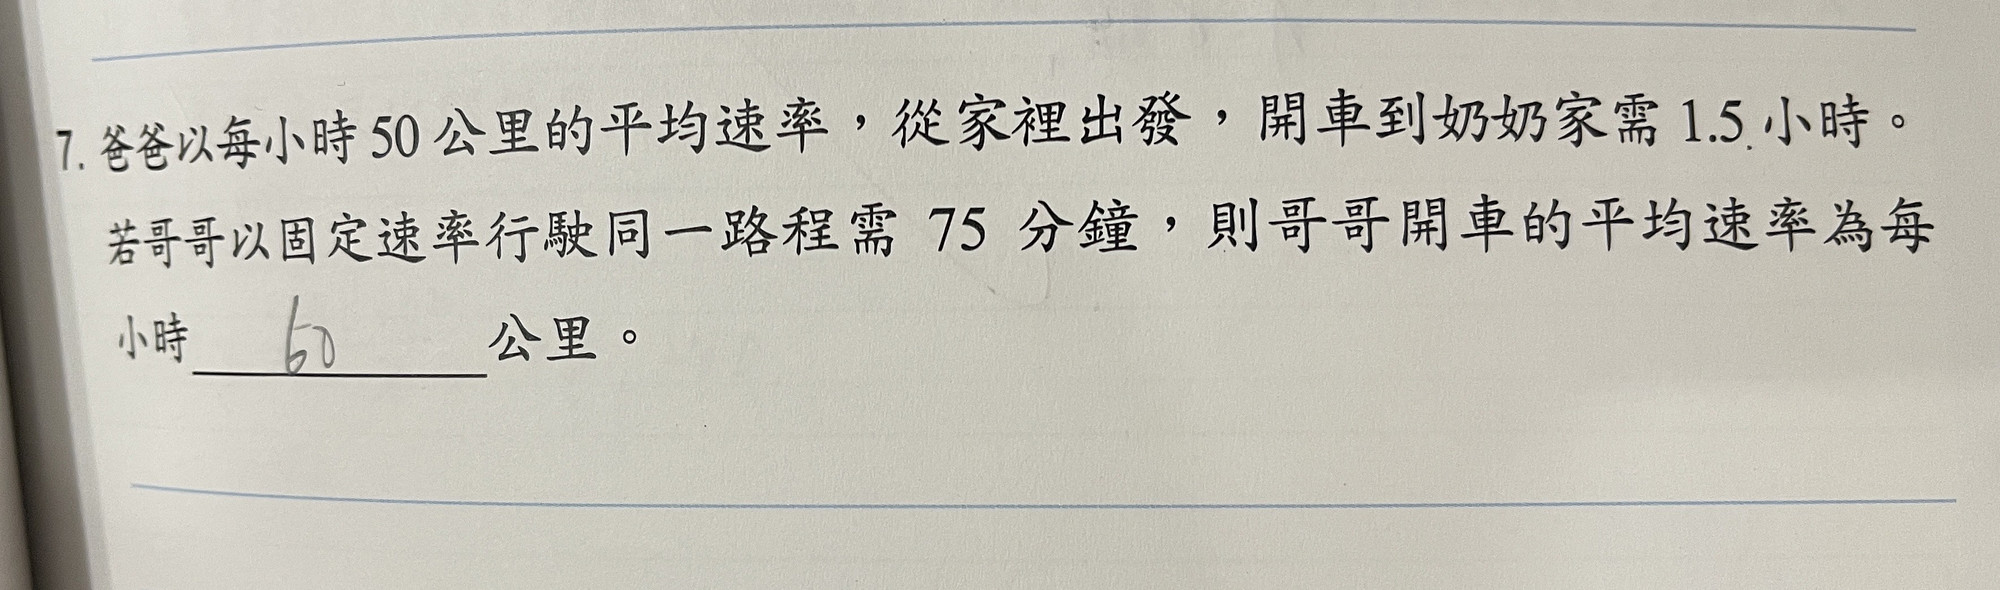 7. 爸爸以每小時 50 公里的平均速率，從家裡出發，開車到奶奶家需 1.5 小時。
若哥哥以固定速率行駛同一路程需 75 分鐘，則哥哥開車的平均速率為每
小時 60 公里。